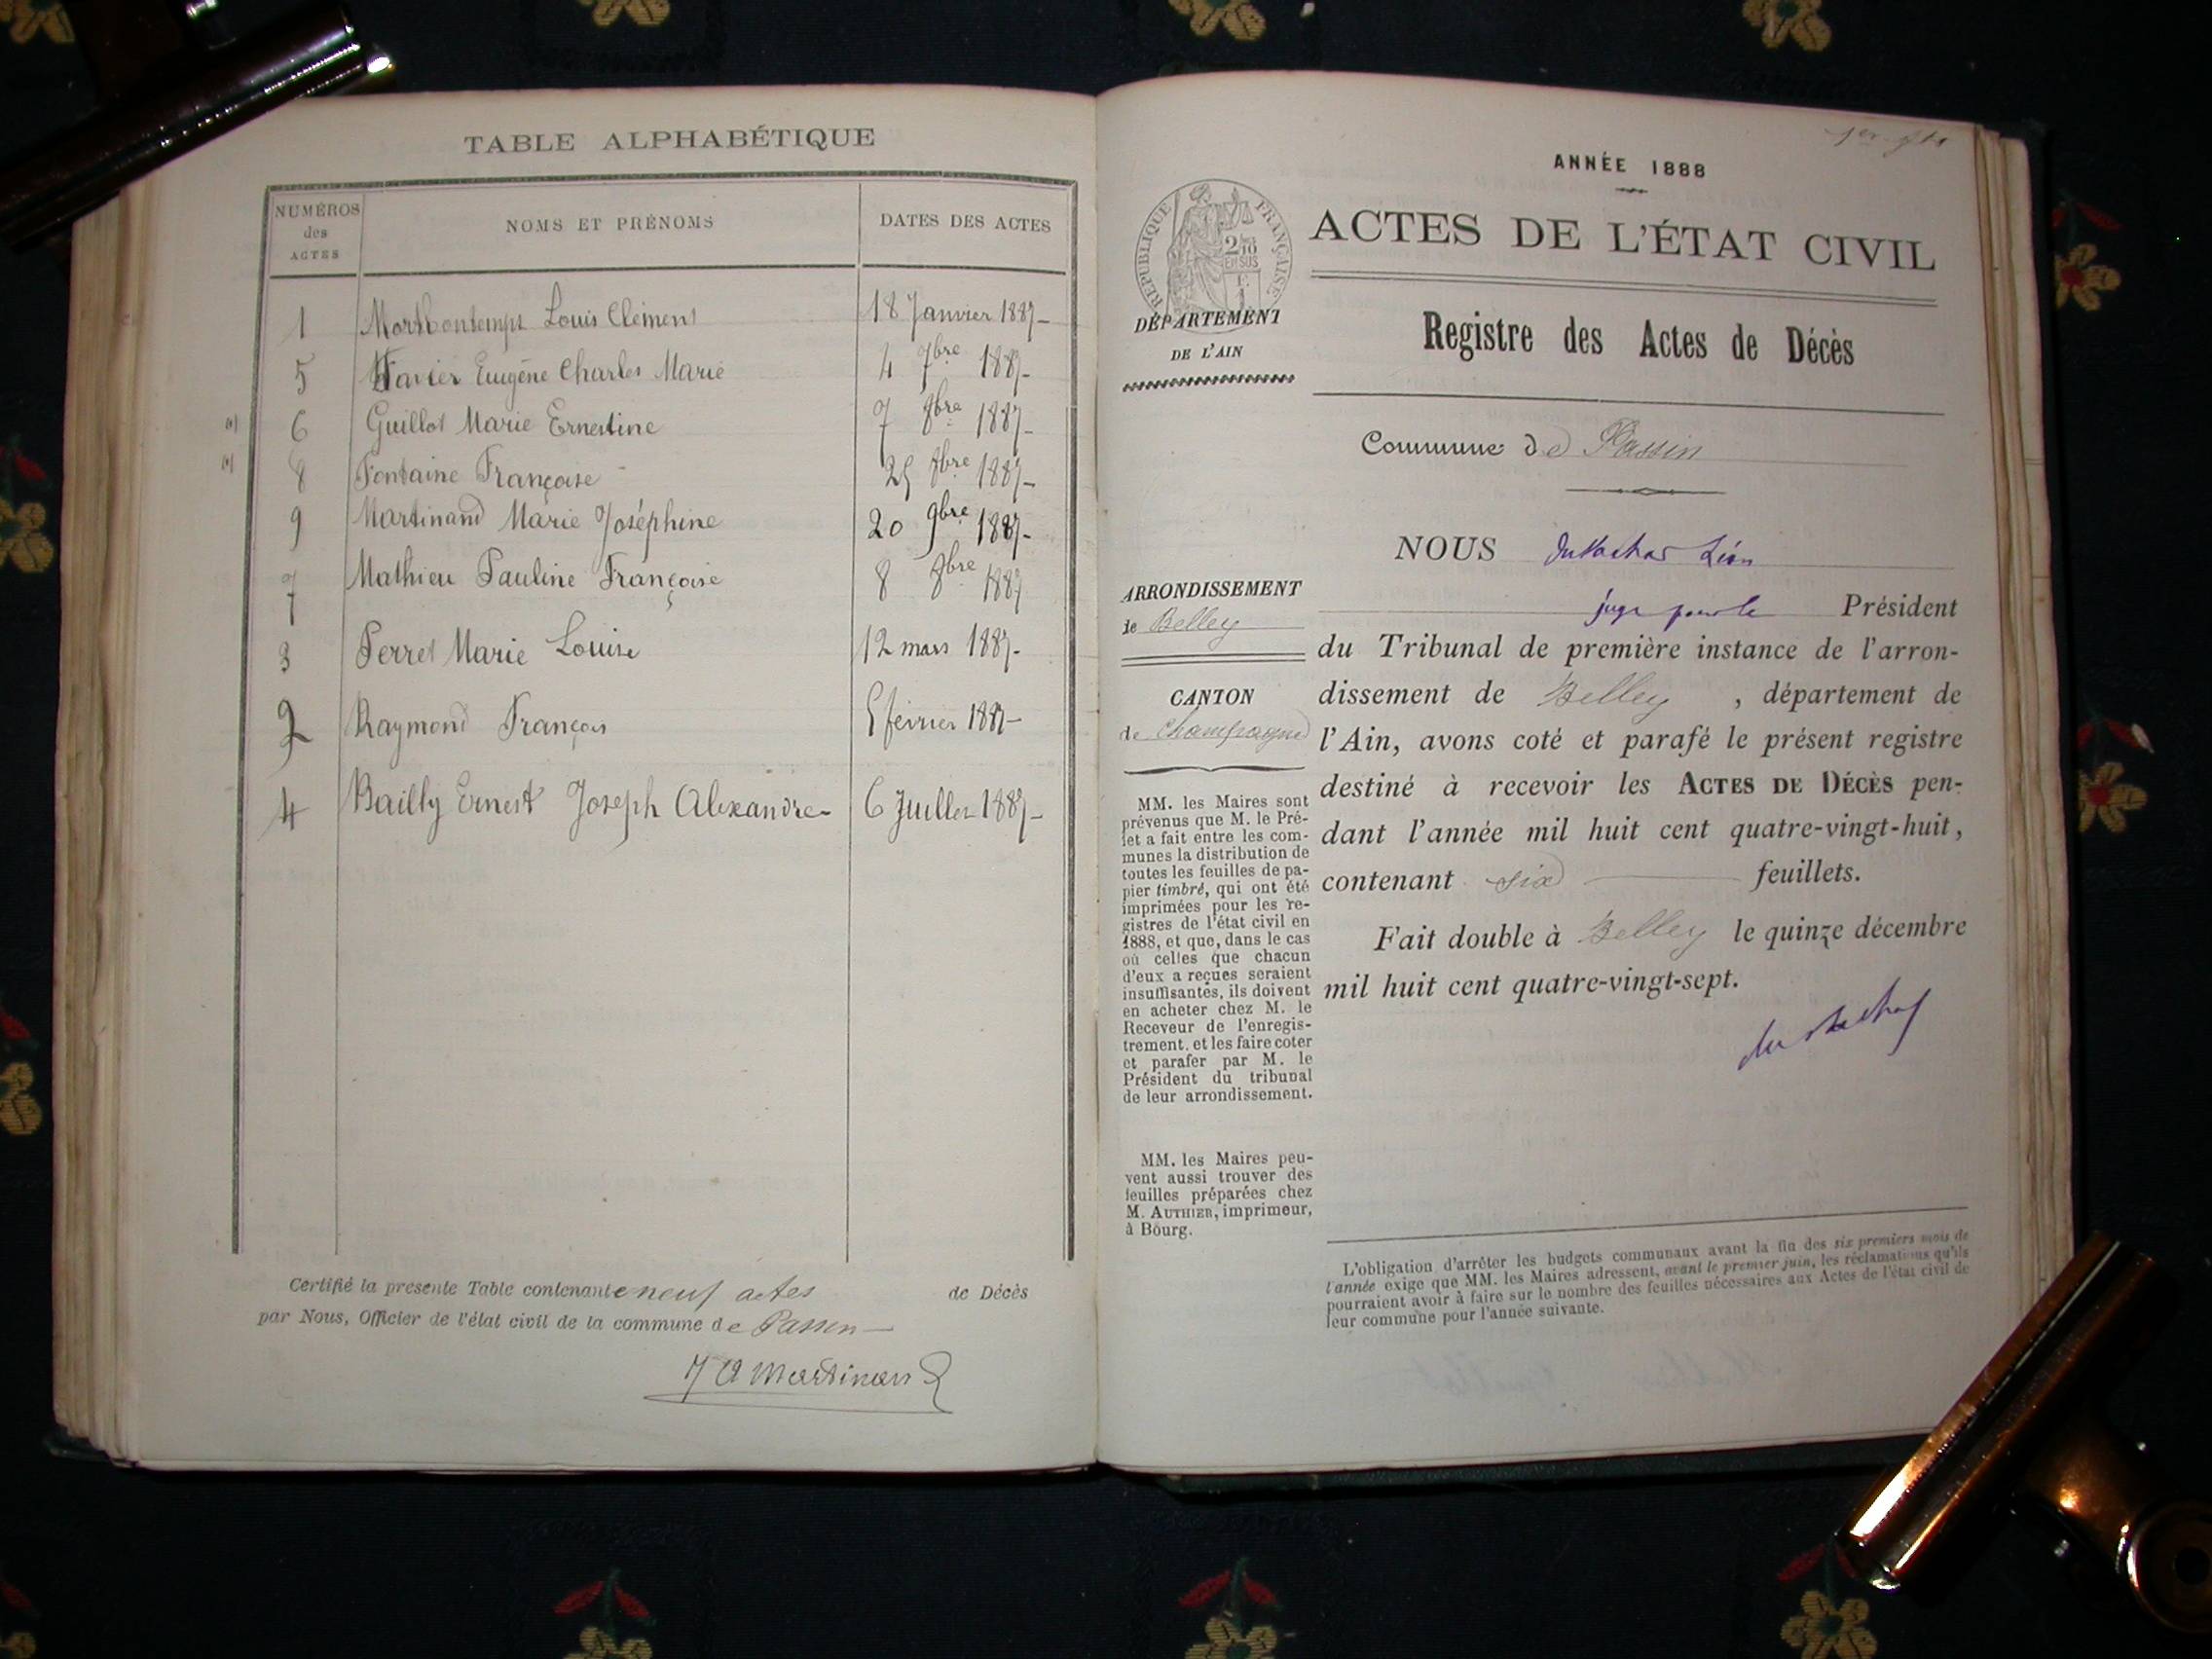 TABLE ALPHABÉTIQUE
NUMÉROS
des
ACTES
NOMS ET PRÉNOMS
DATES DES ACTES
1 Louis Clément 18 Janvier 1887-
5 Eugène Charles Marie 4 7bre 1887-
6 Guillot Marie Ernestine 7 8bre 1887-
8 Fontaine Françoise 25 8bre 1887-
9 Martinand Marie Joséphine 20 9bre 1887-
7 Mathieu Pauline Françoise 8 8bre 1887
3 Perret Marie Louise 12 mars 1887-
2 Raymond François 5 février 1887-
4 Bailly Ernest Joseph Alexandre 6 Juillet 1887-
Certifié la présente Table contenant neuf actes de Décès
par Nous, Officier de l'état civil de la commune de Passin
Martinand
ANNÉE 1888
ACTES DE L'ÉTAT CIVIL
RÉPUBLIQUE FRANÇAISE
2/10
EN SUS
DÉPARTEMENT
DE L'AIN
Registre des Actes de Décès
Commune de Passin
NOUS Léon
juge pour le Président
du Tribunal de première instance de l'arron-
dissement de Belley, département de
l'Ain, avons coté et parafé le présent registre
destiné à recevoir les ACTES DE DÉCÈS pen-
dant l'année mil huit cent quatre-vingt-huit,
contenant six feuillets.
Fait double à Belley le quinze décembre
mil huit cent quatre-vingt-sept.
ARRONDISSEMENT
de Belley
CANTON
de Champagne
MM. les Maires sont
prévenus que M. le Pré-
fet a fait entre les com-
munes la distribution de
toutes les feuilles de pa-
pier timbré, qui ont été
imprimées pour les re-
gistres de l'état civil en
1888, et que, dans le cas
où celles que chacun
d'eux a reçues seraient
insuffisantes, ils doivent
en acheter chez M. le
Receveur de l'enregis-
trement, et les faire coter
et parafer par M. le
Président du tribunal
de leur arrondissement.
MM. les Maires peu-
vent aussi trouver des
feuilles préparées chez
M. AUTHIER, imprimeur,
à Bourg.
L'obligation d'arrêter les budgets communaux avant la fin des six premiers mois de
l'année exige que MM. les Maires adressent, avant le premier juin, les réclamations qu'ils
pourraient avoir à faire sur le nombre des feuilles nécessaires aux Actes de l'état civil de
leur commune pour l'année suivante.